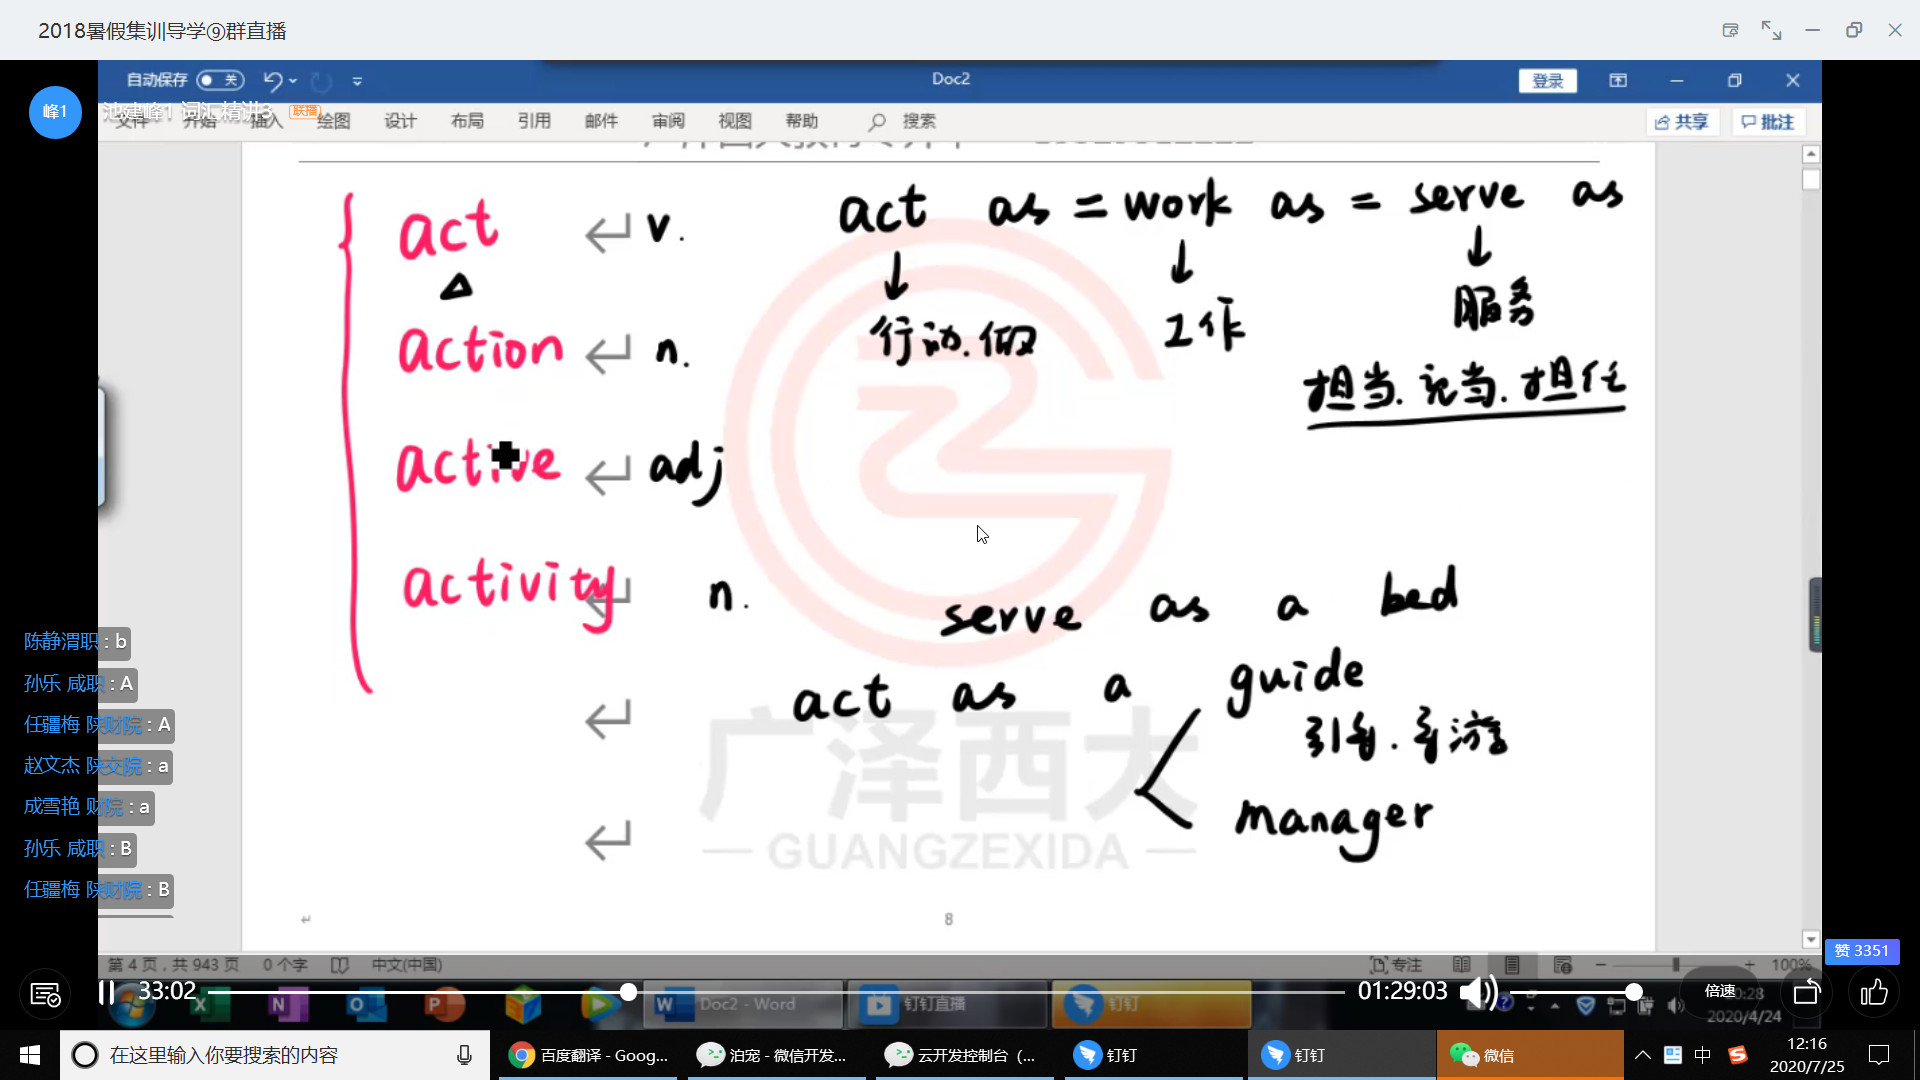 2018暑假集训导学⑨群直播
自动保存 关
Doc2
登录
峰1
池建峰1 词汇精讲3 联播
文件 开始 插入 绘图 设计 布局 引用 邮件 审阅 视图 帮助 搜索
共享 批注
act v.
action n.
active adj
activity n.
act as = work as = serve as
行动.做 工作 服务
担当.充当.担任
serve as a bed
act as a guide
引导.导游
manager
广泽西大
GUANGZEXIDA
8
陈静渭职 : b
孙乐 咸职 : A
任疆梅 陕财院 : A
赵文杰 陕交院 : a
成雪艳 财院 : a
孙乐 咸职 : B
任疆梅 陕财院 : B
赞 3351
第 4 页，共 943 页 0 个字 中文(中国)
专注 100%
33:02
01:29:03
倍速
Doc2 - Word
钉钉直播
钉钉
2020/4/24
在这里输入你要搜索的内容
百度翻译 - Goog...
泊宠 - 微信开发...
云开发控制台（...
钉钉
钉钉
微信
中
12:16
2020/7/25